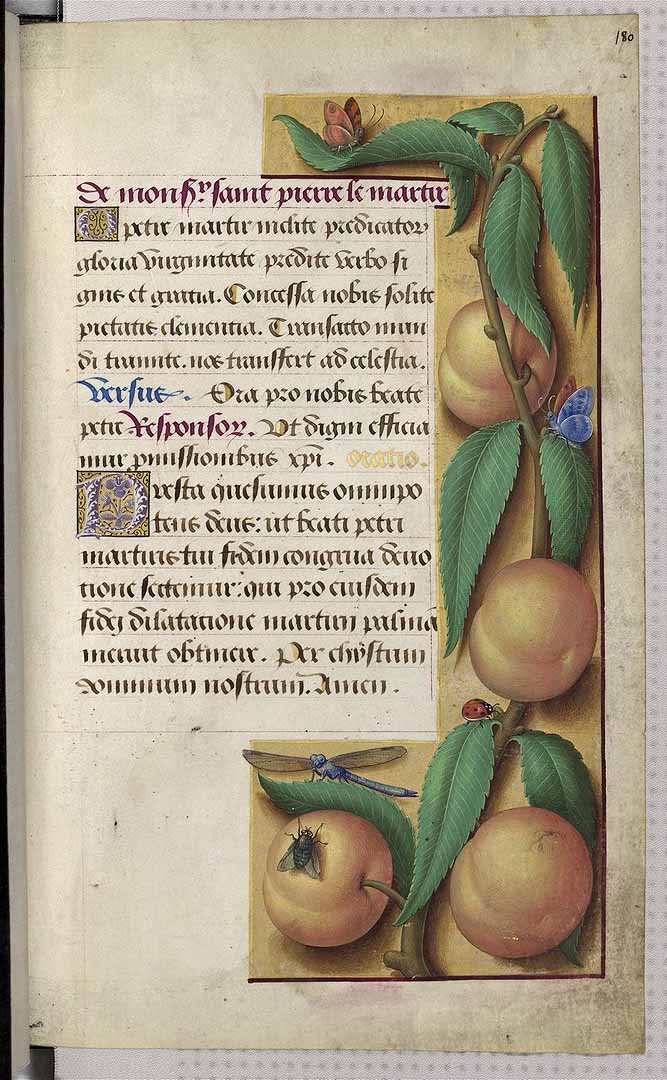 180
De monsr saint pierre le martir
O petre martir inclite predicator
gloria virginitate predite verbo si
gnis et gratia. Concessa nobis solite
pietatis clementia. Transacto mun
di tramite. nos transfert ad celestia.
Versus. Ora pro nobis beate
petre Responsor. Ut digni efficia
mur pmissionibus xpi. oratio.
Presta quesumus omnipo
tens deus: ut beati petri
martiris tui fidem congrua devo
tione sectemur: qui pro eiusdem
fidei dilatacione martirii palmā
meruit obtinere. Per christum
dominum nostrum. Amen.